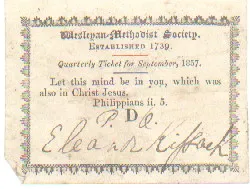 Wesleyan-Methodist Society.
ESTABLISHED 1739.
Quarterly Ticket for September, 1857.
Let this mind be in you, which was
also in Christ Jesus.
Philippians ii. 5.
P. D.
Eleanr Kissack